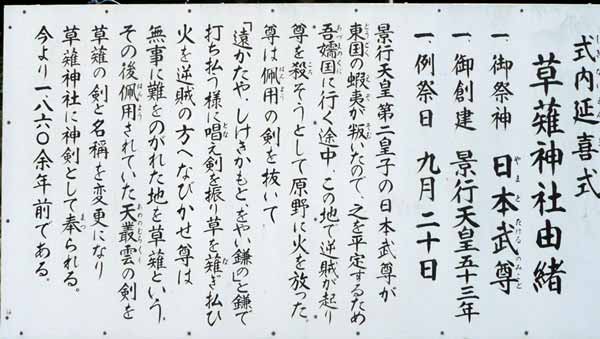 式内延喜式
草薙神社由緒
一、御祭神 日本武尊
一、御創建 景行天皇五十三年
一、例祭日 九月二十日
景行天皇第二皇子の日本武尊が
東国の蝦夷が叛いたので、之を平定するため
吾嬬国に行く途中、この地で逆賊が起り
尊を殺そうとして原野に火を放った
尊は佩用の剣を抜いて
「遠かたや、しけきかもと、をやい鎌の」と鎌で
打ち払う様に唱え剣を振り草を薙ぎ払ひ
火を逆賊の方へなびかせ尊は
無事に難をのがれた地を草薙という。
その後佩用されていた天叢雲の剣を
草薙の剣と名稱を変更になり
草薙神社に神剣として奉られる。
今より一、八六〇余年前である。